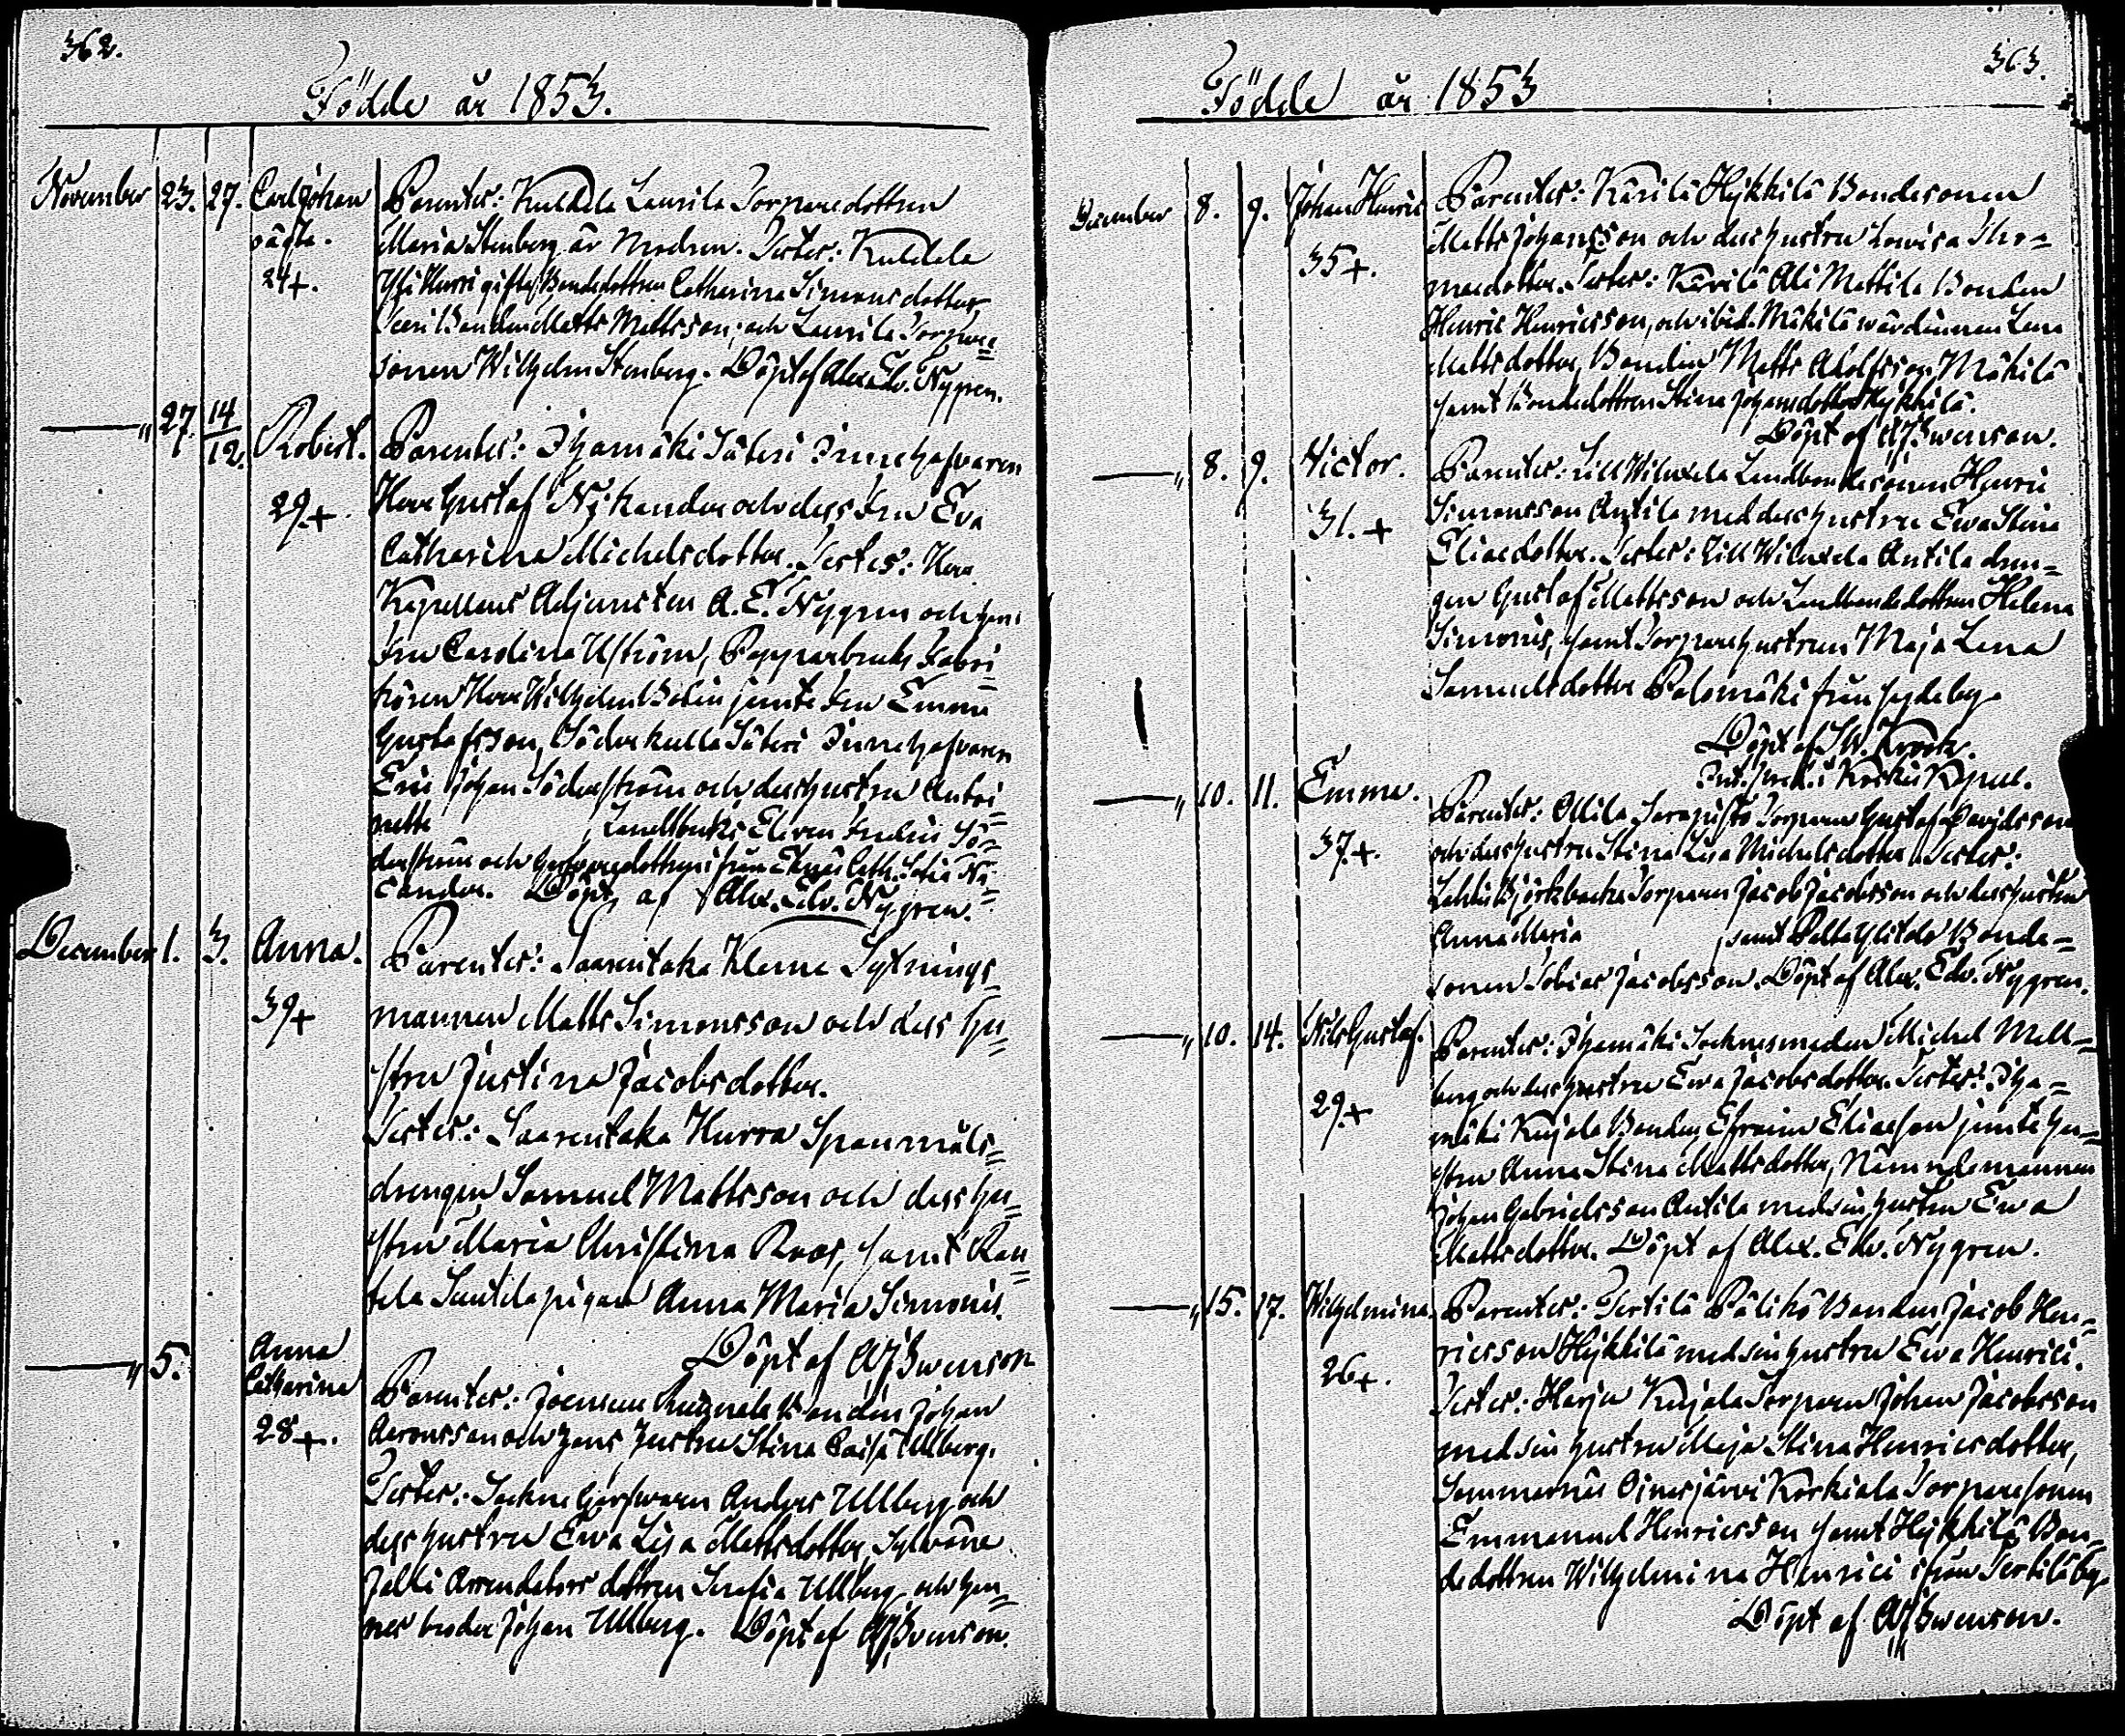 362.
Födde år 1853.
November 23. 27. Carl Johan oägta. 24+.
Parentes: Kuldela Laurila Torparedottren
Maria Stenberg är modren. Testes: Kuldela
Yli Hurri gifte Bondedottren Catharina Simonsdotter,
Bonden Matts Mattsson, och Laurila Torpare=
sonen Wilhelm Stenberg. Döpt af Alex. Edv. Nygren.
—„ 27. 14/12. Robert. 29.+.
Parentes: Ihamäki Säteri Innehafvaren
Herr Gustaf Nikander och dess Fru Eva
Catharina Michelsdotter. Testes: Herr
Kapellans Adjuncten A. E. Nygren och hans
Fru Carolina Uström, Papparbruks Fabri=
kören Herr Wilhelm Bolin jemte Fru Emma
Gustafsson, Söderkulla Säteri Innehafvaren
Eric Johan Söderström och dess hustru Antoi=
nette , Landtbruks Eleven Fredric Sö=
derström och dottren ifrån Cath. Sofia Ni=
cander. Döpt af Alex. Edv. Nygren.
December 1. 3. Anna. 39+
Parentes: Saarentaka Kleme Sytnings
mannen Matts Simonsson och dess hu=
stru Justina Jacobsdotter.
Testes: Saarentaka Hurra Spanmåls=
drengen Samuel Mattsson och dess hu=
stru Maria Christina Roos, samt Ran=
tela Sentila pigan Anna Maria Simonis.
Döpt af AJSwenson
—„ 5. Anna Catharina 28+.
Parentes: Joensuu Bonden Johan
Aaronsson och hans hustru Stina Caisa Ullberg.
Testes: Sockne Garfwaren Anders Ullberg och
dess hustru Ewa Lisa Mattsdotter,
Jalli Arrendators dottren Serafia Ullberg och hen=
nes broder Johan Ullberg. Döpt af AJSwenson.
363.
Födde år 1853
December 8. 9. Johan Henric 35+.
Parentes: Kärilä Hykkilä Bondesonen
Matts Johansson och dess hustru Lowisa Tho=
masdotter. Testes: Kärilä Ali Mattila Bonden
Henric Henricsson, och ibid. Mäkilä wärdinnan Lena
Mattsdotter, Bonden Matts Adolfsson Mäkilä
samt Bondedottren Stina Johansdotter Hykkilä.
Döpt af AJSwenson.
—„ 8. 9. Victor. 31.+
Parentes: Lill Wiluxela Landbondesonen Henric
Simonsson Antila med dess hustru Ewa Stina
Eliaedotter. Testes: Lill Wiluxela Antila dren=
gen Gustaf Mattsson och Landbondedottren Helena
Simonis, samt Torparehustrun Maja Lena
Samuelsdotter Palomäki från by.
Döpt af
Koskis Kapell.
—„ 10. 11. Emma. 37.+.
Parentes: Ollila Torparen Gustaf Davidsson
och dess hustru Stina Lisa Michelsdotter. Testes:
Björkbacka Torparen Jacob Jacobsson och dess hustru
Anna Maria , samt Pelto Ylitalo Bonde=
sonen Tobias Jacobsson. Döpt af Alex. Edv. Nygren.
—„ 10. 14. Nils Gustaf. 29.+
Parentes: Ihamäki Socknesmeden Michel Mell=
berg och dess hustru Ewa Jacobsdotter. Testes: Iha=
mäki Kujala Bonden Efraim Eliaeson jemte hu=
stru Anna Stina Mattsdotter, Nämndemannen
Johan Gabrielsson Antila med sin hustru Ewa
Mattsdotter. Döpt af Alex. Edv. Nygren.
—„ 15. 17. Wilhelmina. 26+.
Parentes: Tertilä Bonden Jacob Hen=
ricsson Hykkilä med sin hustru Ewa Henrici.
Testes: Harju Kujala Torparen Johan Jacobsson
med sin hustru Maja Stina Henricsdotter,
Sommarnäs Oinasjärvi Korkiala Torparesonen
Emmanuel Henricsson samt Hykkilä Bon=
dedottren Wilhelmina Henrici ifrån Tertilä by.
Döpt af AJSwenson.